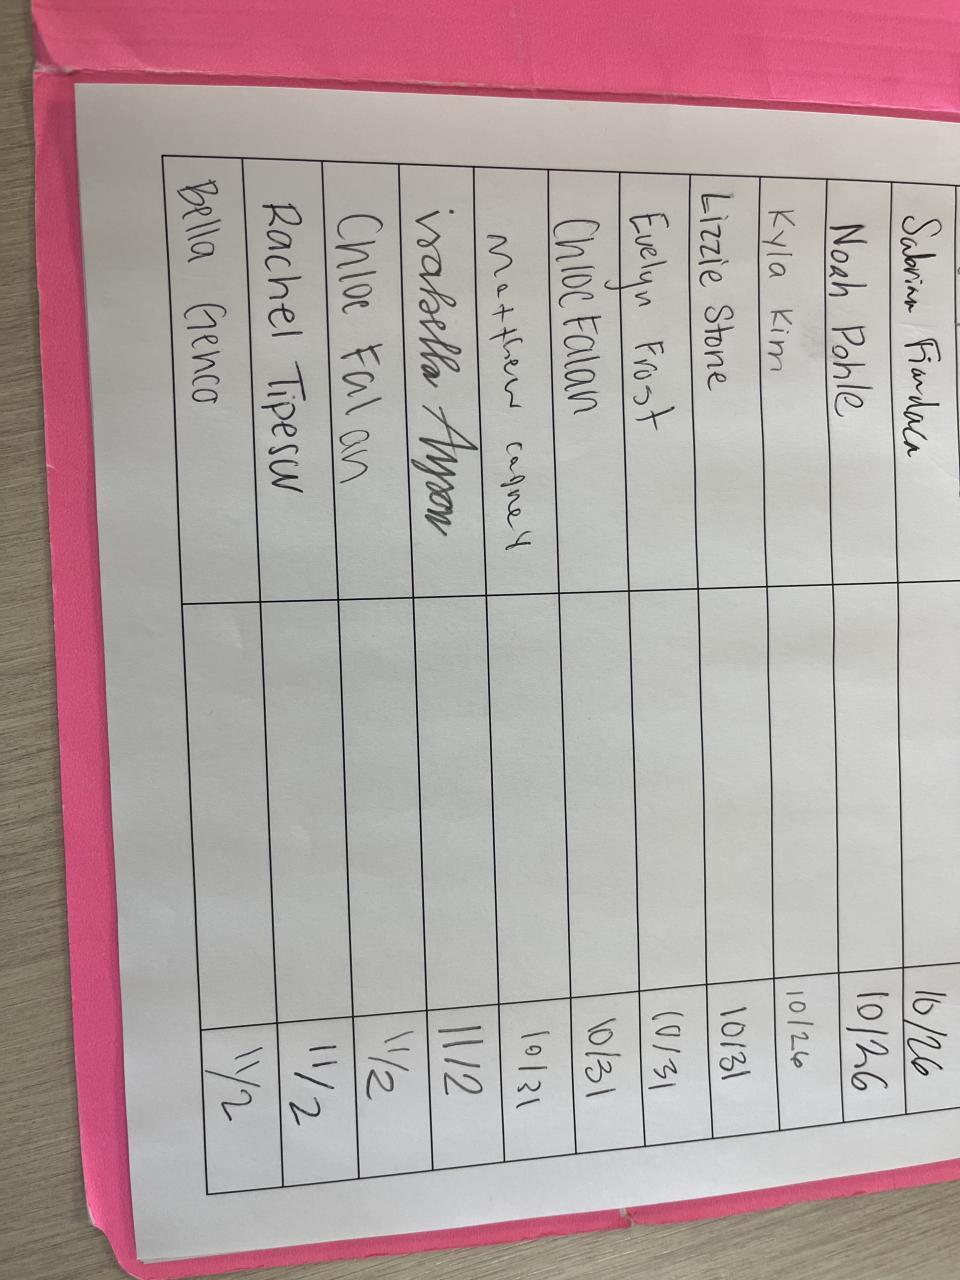 Sabrina Fiandaca 10/26
Noah Pohle 10/26
Kyla Kim 10/26
Lizzie Stone 10/31
Evelyn Frost 10/31
Chloe Falan 10/31
Matthew cagney 10/31
isabella 11/2
Chloe Falan 11/2
Rachel Tipescu 11/2
Bella Genco 11/2